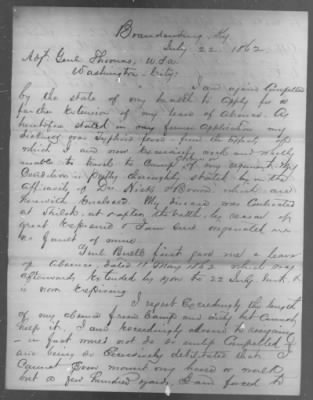 Brandenburg, Ky
July 22, 1862
Adjt Genl Thomas, U.S.A.
Washington City.
I am again Compelled
by the state of my health to apply for a
further Extension of my leave of Absence. As
heretofore stated in my former application my
Sickness was Typhoid fever - from the Effects of
which I am now recovering and wholly
unable to travel to Camp of my regiment. My
Condition is fully stated by in the
affidavit of Dr. which are
herewith Enclosed. My disease was Contracted
at Shiloh, at & after the battle, by reason of
great Exposure & I am sure originated in
no fault of mine.
Genl Buell first gave me a leave
of Absence dated 11th May 1862 which was
afterwards Extended by you to 22 July Inst. &
is now Expiring
I regret Exceedingly the length
of my absence from Camp and duty but Cannot
help it. I am Exceedingly adverse to resigning
- in fact would not do so until Compelled
and being so Excessively debilitated that I
Cannot Even mount my horse or walk
but a few hundred yards, I am forced to